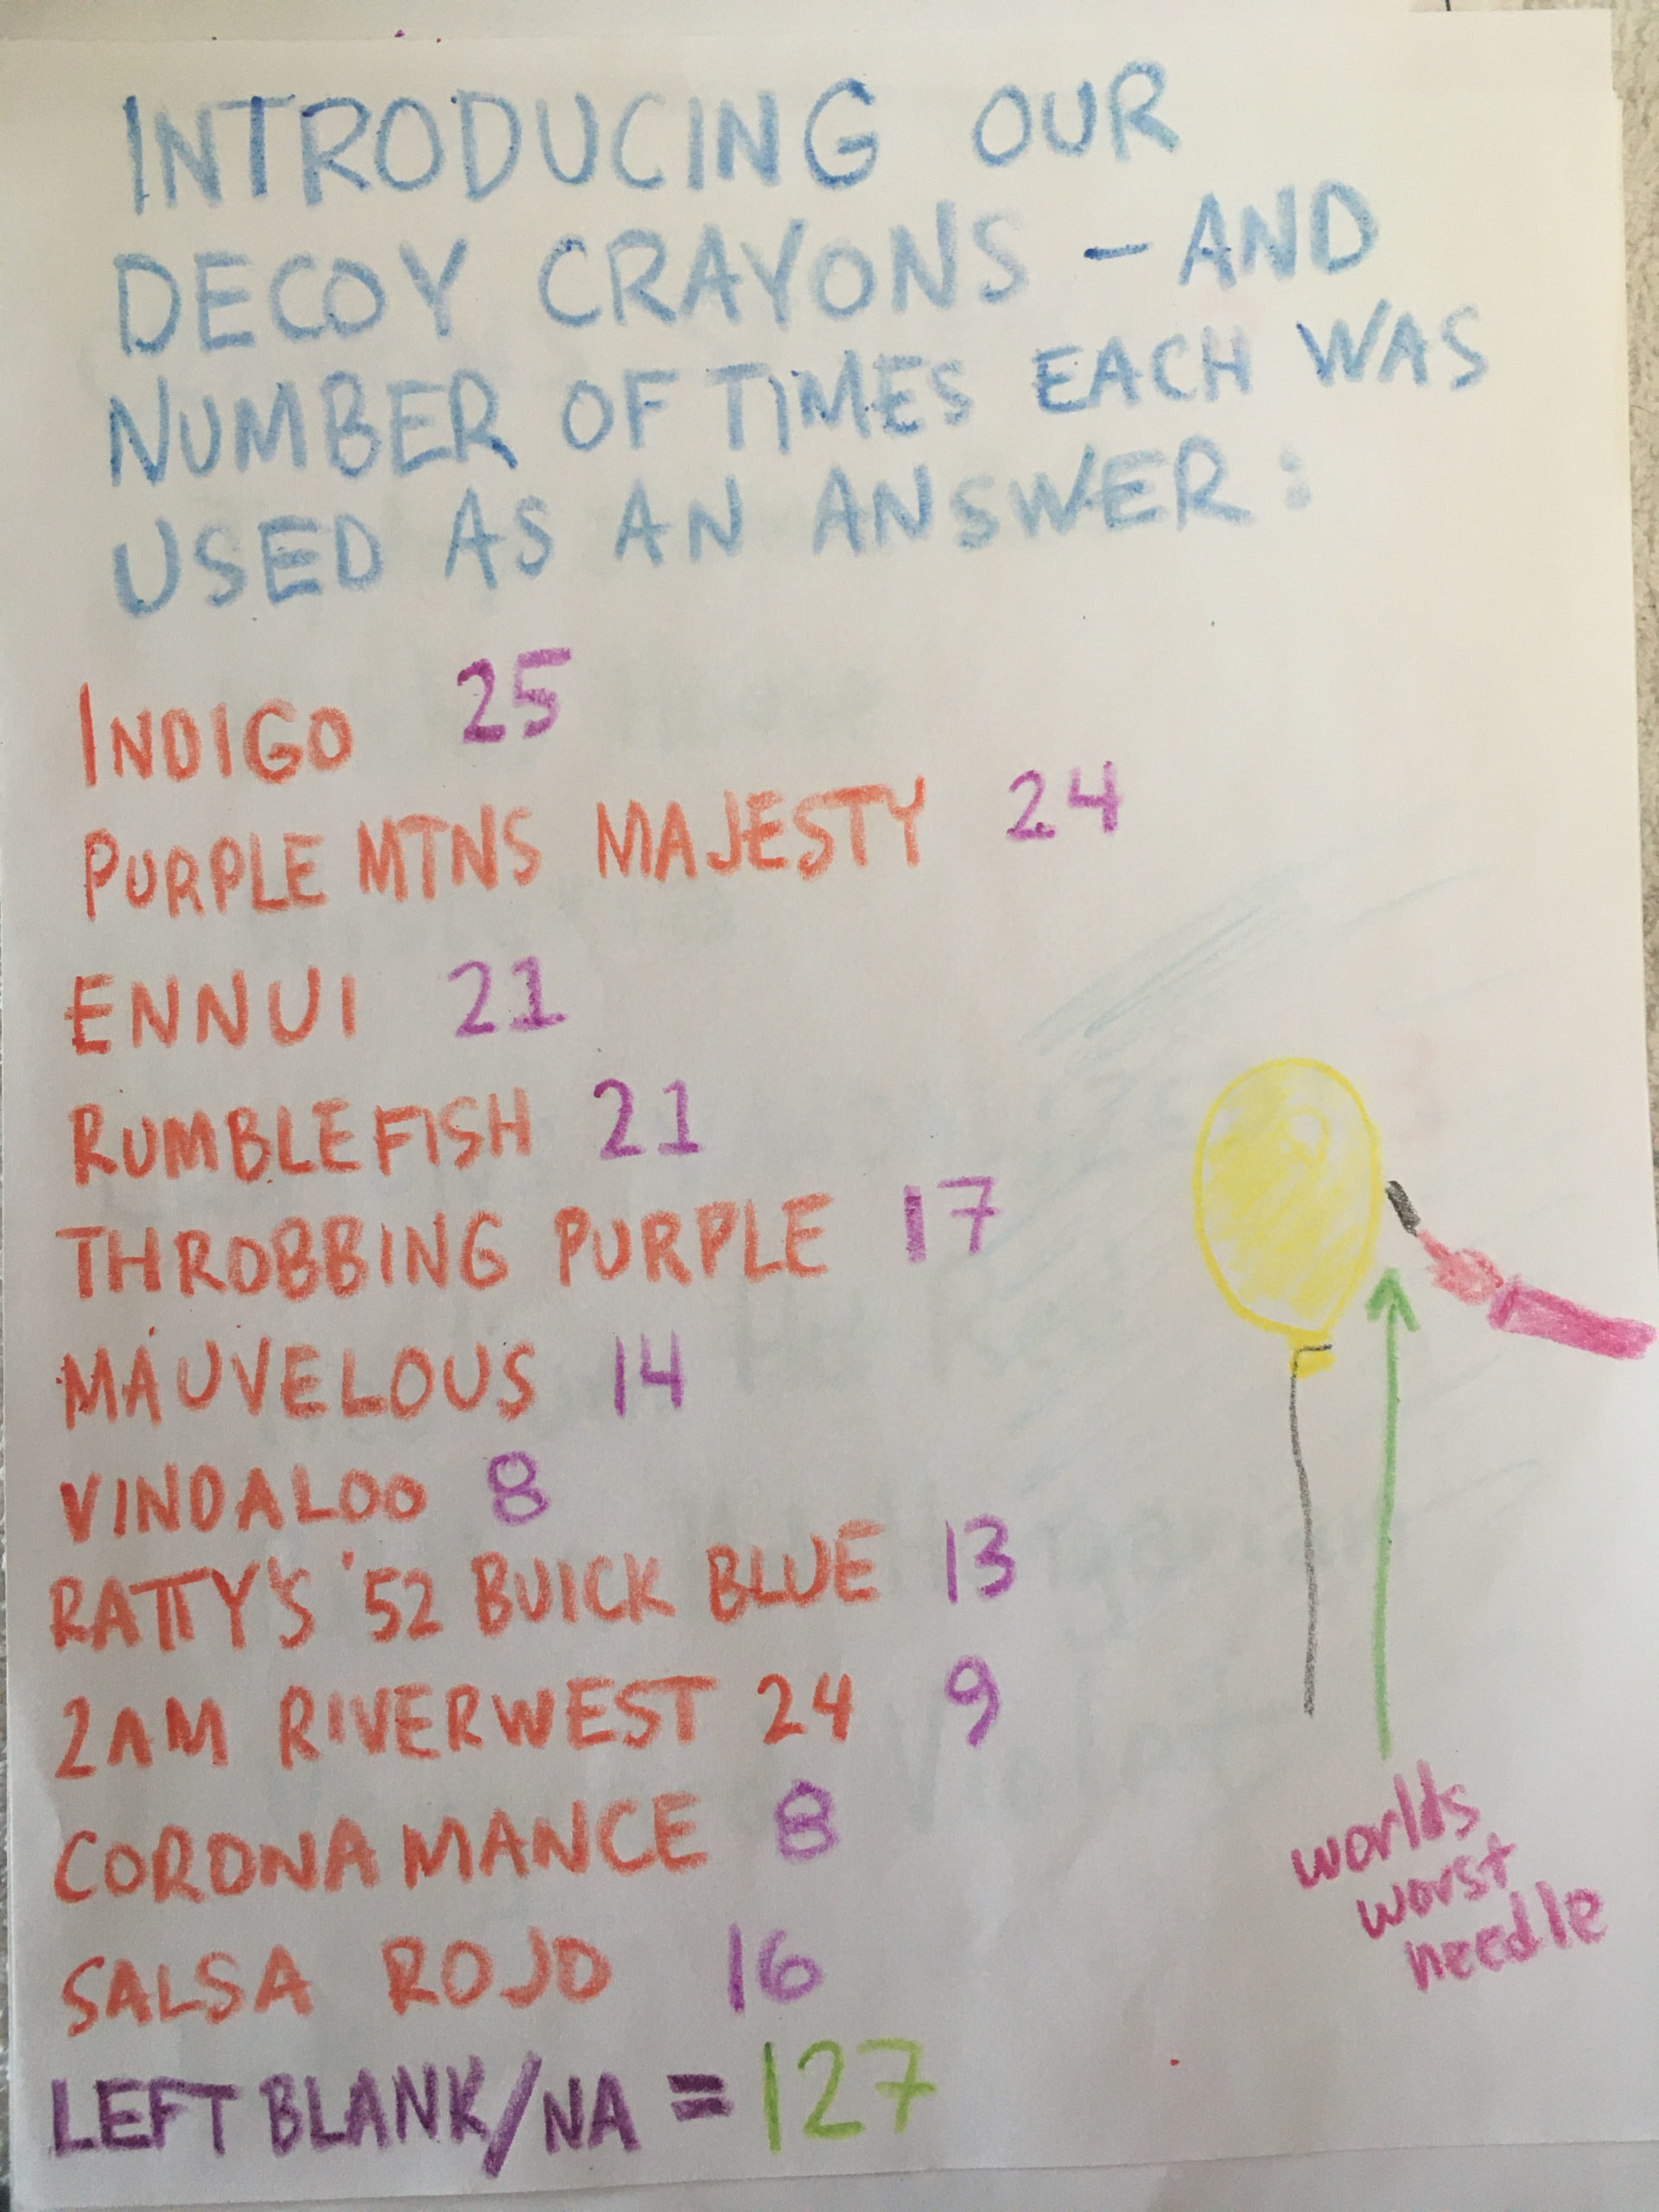 INTRODUCING OUR
DECOY CRAYONS - AND
NUMBER OF TIMES EACH WAS
USED AS AN ANSWER:
INDIGO 25
PURPLE MTNS MAJESTY 24
ENNUI 21
RUMBLEFISH 21
THROBBING PURPLE 17
MAUVELOUS 14
VINDALOO 8
RATTY'S '52 BUICK BLUE 13
2AM RIVERWEST 24 9
CORONAMANCE 8
SALSA ROJO 16
LEFT BLANK/NA = 127
worlds
worst
needle